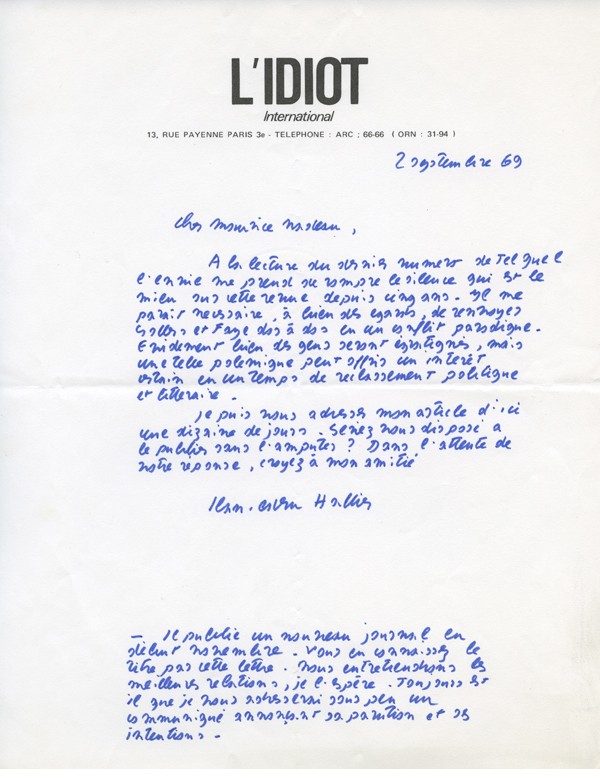 L'IDIOT
International
13, RUE PAYENNE PARIS 3e - TELEPHONE : ARC ; 66-66 ( ORN : 31-94 )
2 septembre 69
Cher Maurice Nadeau,
A la lecture du dernier numero de Tel Quel
l'envie me prend de rompre le silence qui est le
mien sur cette revue depuis cinq ans. Il me
parait necessaire, à bien des egards, de renvoyer
Sollers et Faye dos à dos en un conflit parodique.
Evidemment bien des gens seront égratignés, mais
une telle polemique peut offrir un intérêt
certain en un temps de reclassement politique
et litteraire.
Je puis vous adresser mon article d'ici
une dizaine de jours. Seriez vous disposé à
le publier sans l'amputer ? Dans l'attente de
votre reponse, croyez à mon amitié
Jean-Edern Hallier
- Je publie un nouveau journal en
début novembre. Vous en connaissez le
titre par cette lettre. Nous entretiendrons les
meilleures relations, je l'espère. Toujours est
il que je vous adresserai sous peu un
communiqué annonçant sa parution et ses
intentions.